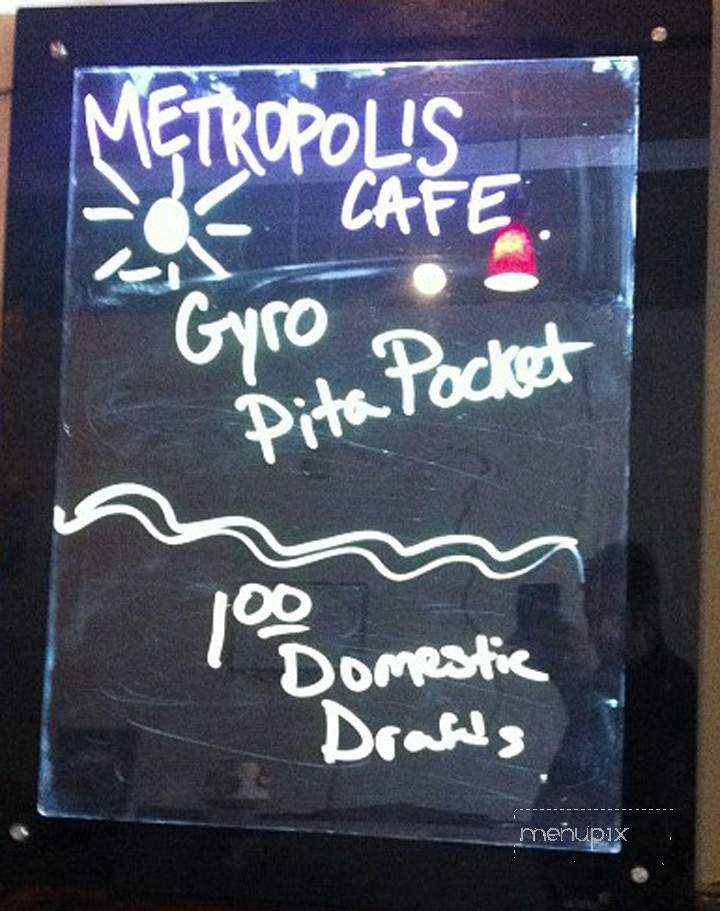 METROPOLIS
CAFE
Gyro
Pita Pocket
1.00
Domestic
Drafts
menupix